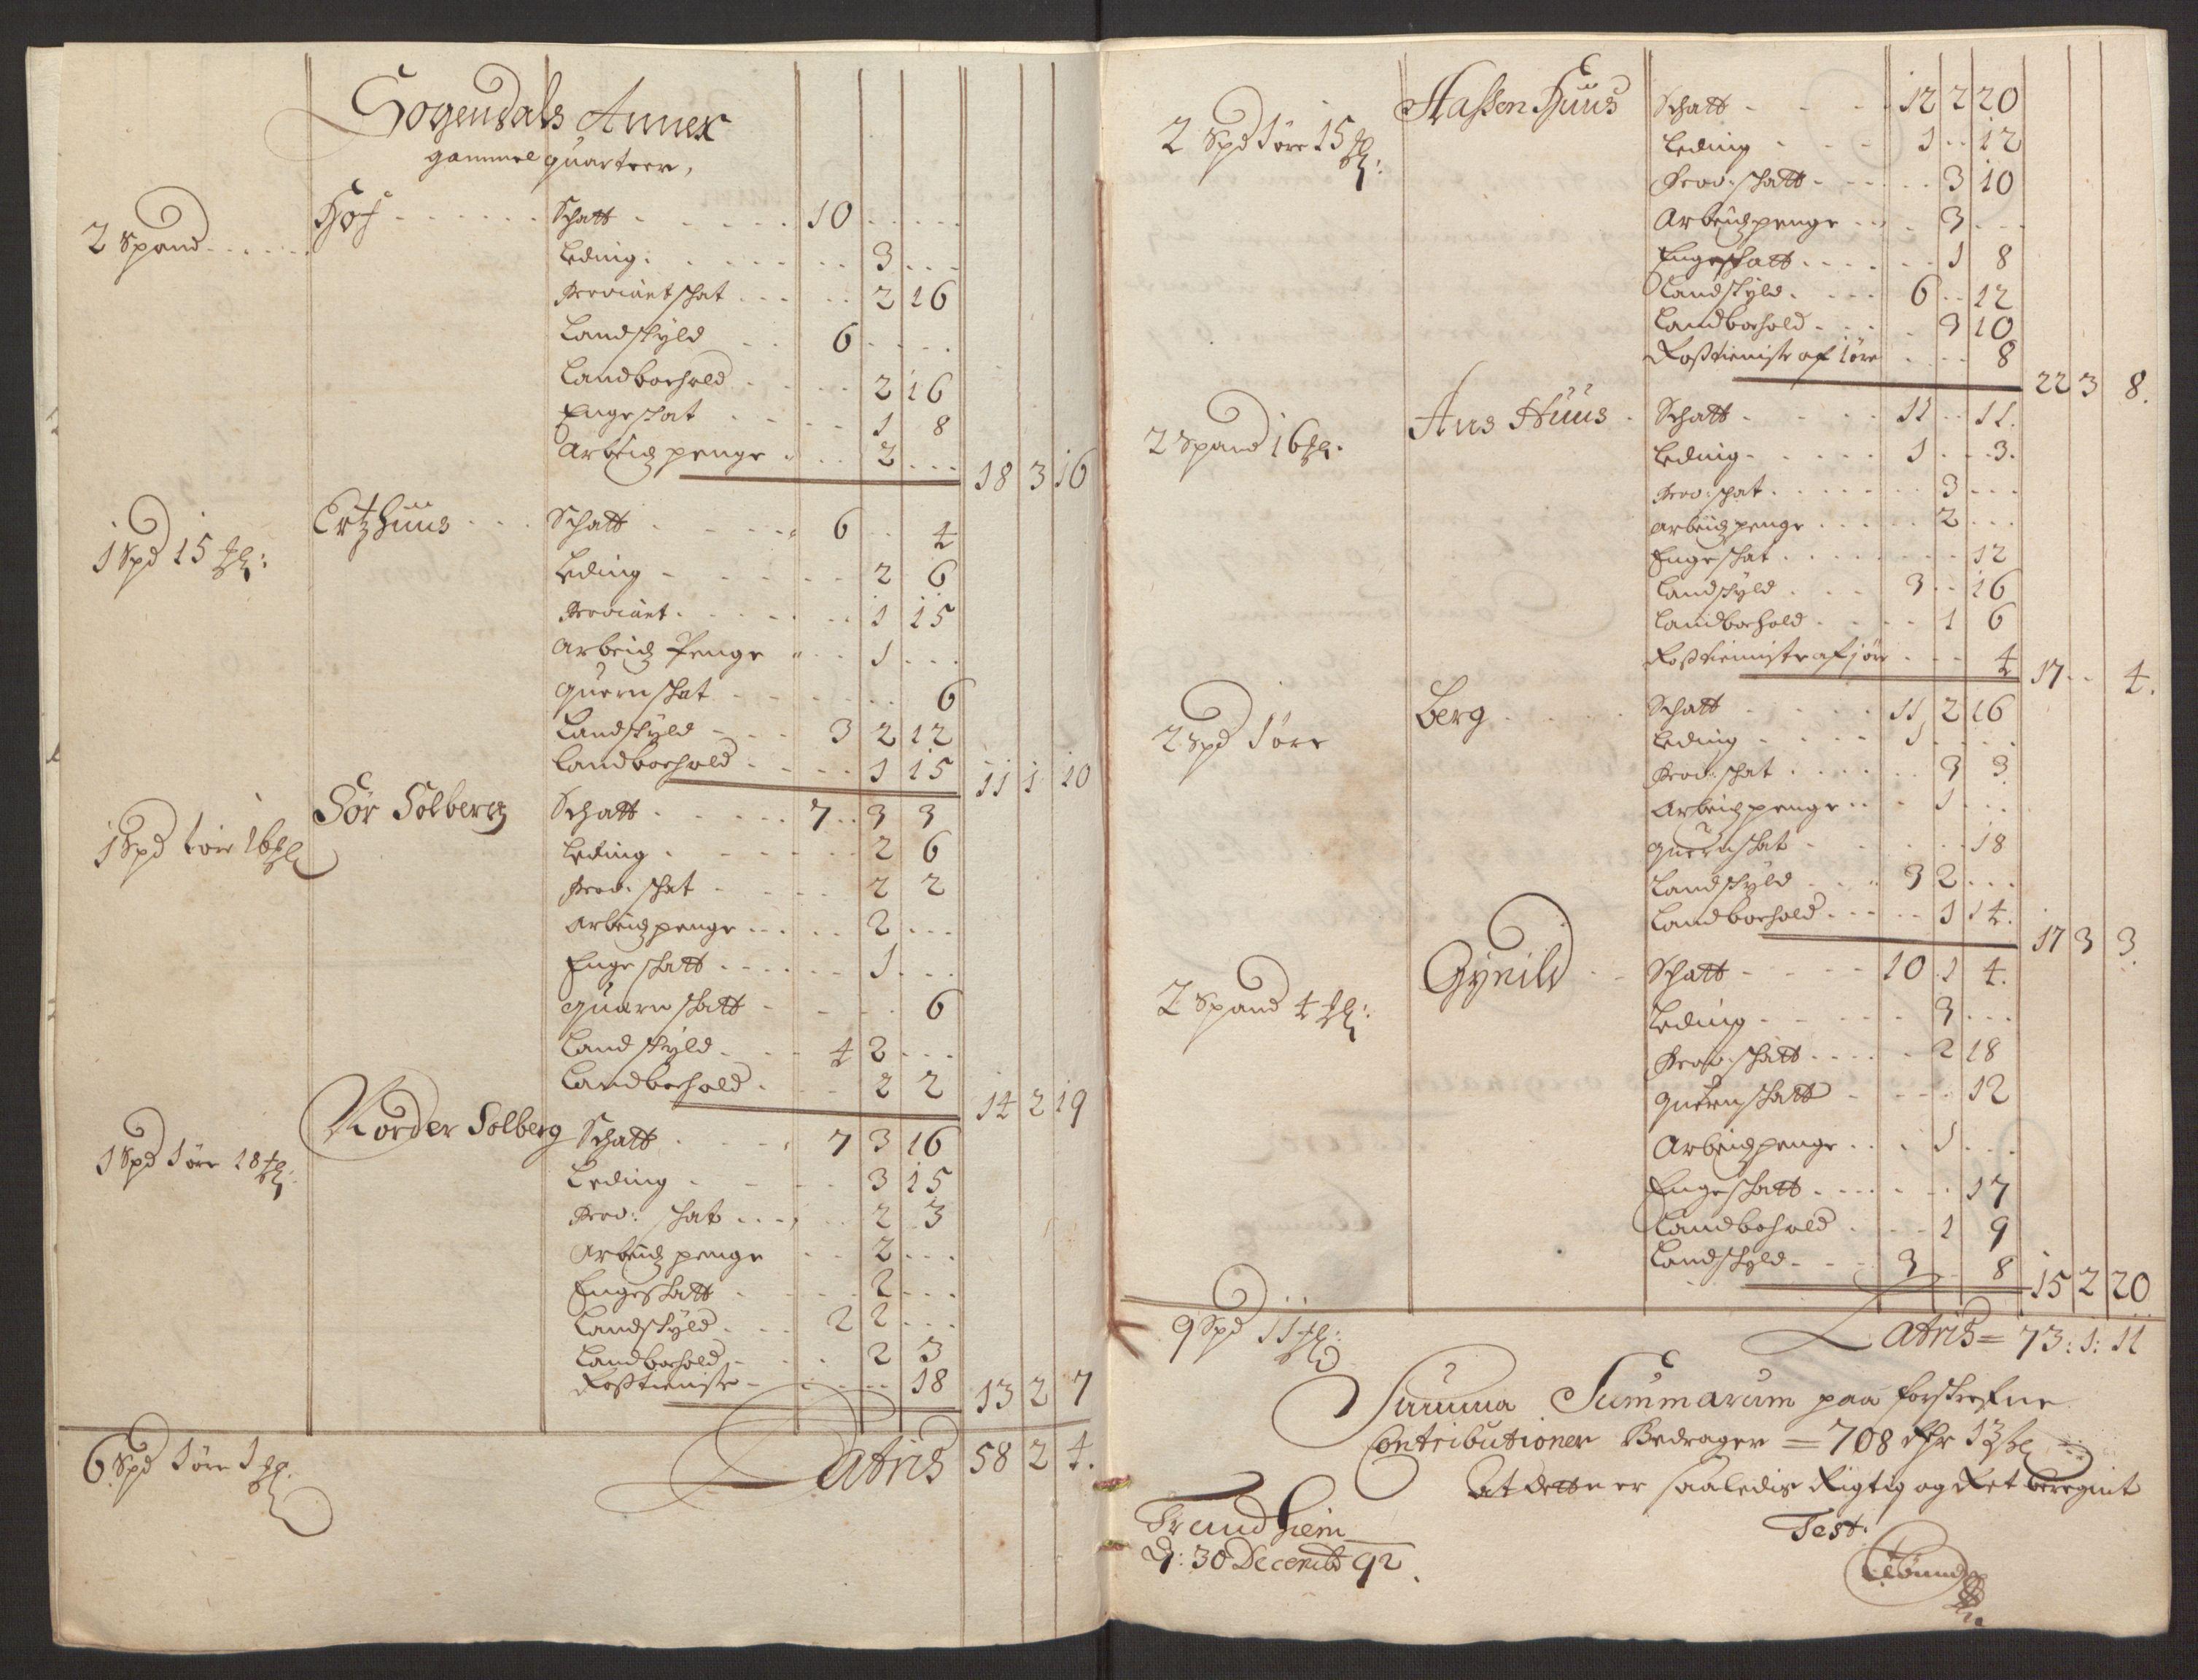 Sogendals Annex
gammel quarteer,
2 Spand Hof Schatt 10
Leding 3
Proviant schat 2 16
Landschyld 6
Landboehold 2 16
Enge schat 1 8
Arbeidz penge 2
18 3 16
1 Spd 15 Mkl: Ertzhuus Schatt 6 4
Leding 2 6
Proviant 1 15
Arbeidz Penge 1
quern schat 6
Landschyld 3 2 12
Landboehold 1 15
11 1 10
1 Spd 1 øre 16 Mkl Sør Solberg Schatt 7 3 3
Leding 2 6
Prov: schat 2 2
Arbeidz penge 2
Enge schatt 1
quern schatt 6
Land schyld 4 2
Landboehold 2 2
14 2 19
1 Spd 1 øre 18 Mkl: Norder Solberg Schatt 7 3 16
Leding 3 15
Prov: schat 2 3
Arbeidz penge 2
Enge schatt 2
Landschyld 2 2
Landboehold 2 3
Rostieniste 18
13 2 7
6 Spd 1 øre 1 Mkl. Latris 58 2 4.
2 Spd 1 øre 15 Mkl: Hassen Huus Schatt 12 2 20
Leding 1 12
Prov: schatt 3 10
Arbeidz penge 3
Enge schatt 1 8
Landschyld 6 12
Landboehold 3 10
Rostieniste af 1 øre 8
22 3 8.
2 Spand 16 Mkl. Aus Huus Schatt 11 11.
Leding 1 3.
Prov: schat 3
arbeidz penge 2
Enge schat 12
Landschyld 3 16
Landboehold 1 6
Rostieniste af 1 øre 4
17 4.
2 Spd 1 øre Berg Schatt 11 2 16
Leding 1
Prov: schat 3 3
Arbeidz penge 1
quern schat 18
Landschyld 3 2
Landboehold 1 14.
17 3 3.
2 Spand 4 Mkl: Gynild Schatt 10 1 4.
Leding 3
Prov: schatt 2 18
quern schatt 12
Arbeidz penge 1
Enge schatt 17
Landbohold 1 9
Landschyld 3 8
15 2 20
9 Spd 11 Mkl: Latris = 73: 1: 11
Summa Summarum paa forschrefne
Contributioner Bedrager = 708 Rhr 13
At dette er saaledis Rigtig og Ret beregnit
Trundhiem Test:
d: 30 Decemb 92.